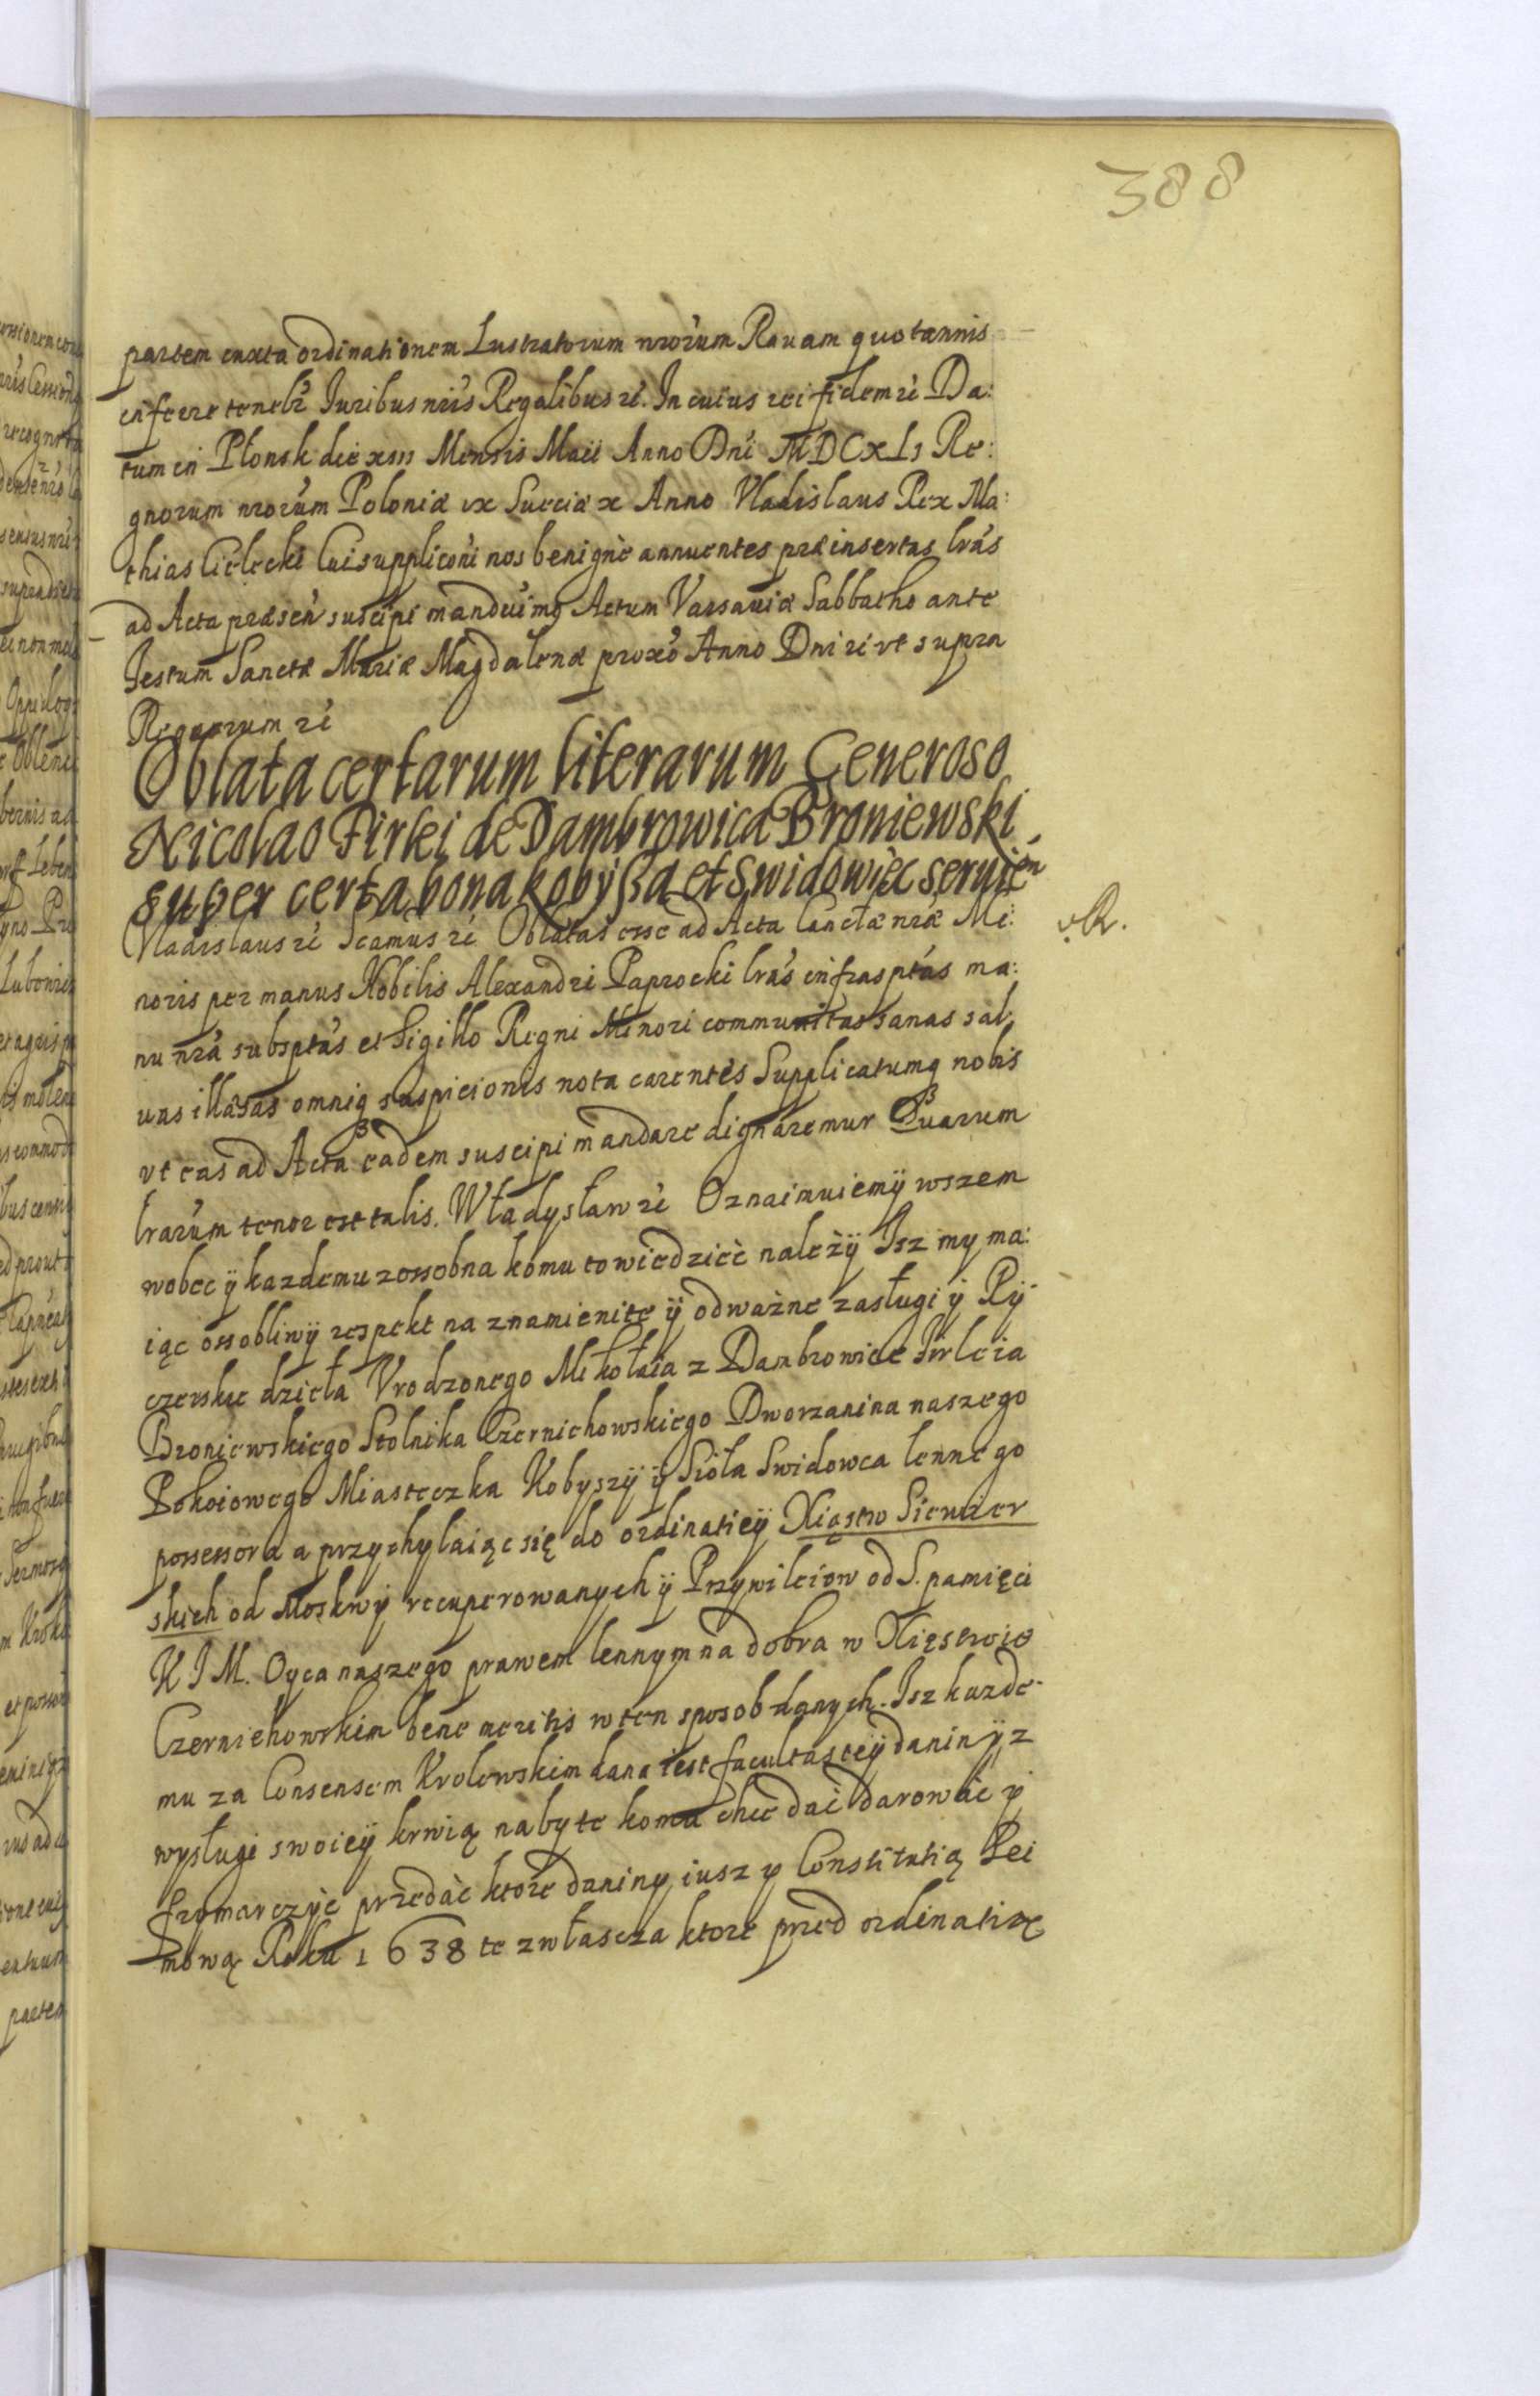 388
partem iuxta ordinationem Lustratorum nrorum Rauam quotannis
inferre tenebr Iuribus nris Regalibus rć. In cuius rei fidem rć Da:
tum in Płonsk die XIII Mensis Maii Anno Dni MDCXLI Re:
gnorum nrorum Poloniæ IX Sueciæ X Anno Vladislaus Rex Ma:
thias Cielecki Cui suppliconi nos benignè annuentes præinsertas lras
ad Acta præsen suscipi manduimq Actum Varsauiæ Sabbatho ante
Festum Sanctæ Mariæ Magdalenæ proxo Anno Dni rć vt supra
Regnorum rć
Oblata certarum literarum Generoso
Nicolao Firlei de Dambrowica Broniewski
super certa bona Kobyßa et Swidowiec seruien
Vladislaus rć Scamus rć Oblatas esse ad Acta Cancellæ nræ Mi:
R.
noris per manus Nobilis Alexandri Paprocki lras infrasptas ma:
nu nra subsptas et Sigillo Regni Minori communitas sanas sal:
uas illæsas omniq suspicionis nota carentes Supplicatumq nobis
vt eas ad Acta eadem suscipi mandare dignaremur Quarum
lrarum tenor est talis. Władysław rć Oznaimuiemÿ wszem
wobec ÿ kazdemu zossobna komu to wiedzieć należÿ Isz my ma:
iąc ossobliwÿ respekt na znamienite ÿ odważne zasługi ÿ Rÿ
czerskie dzieła Vrodzonego Mikołaia z Dambrowice Firleia
Broniewskiego Stolnika Czernichowskiego Dworzanina naszego
Pokoiowego Miasteczka Kobyszÿ ÿ Sioła Swidowca lennego
possessora a przychylaiąc się do ordinatieÿ Xięstw Siewier
skich od Moskwÿ recuperowanych ÿ Przywileiow od S. pamięci
K I M. Oyca naszego prawem lennym na dobra w Xięstwie
Czernichowskim bene meritis w ten sposob danych. Isz kazde
mu za Consensem Krolewskim dana iest facultas teÿ daninÿ z
wysługi swoieÿ krwią nabyte komu chce dać darować ÿ
frymarczyć przedać ktore daniny iusz y Constitutią Sei
mową Roku 1638 te zwłascza ktore przed ordinatią